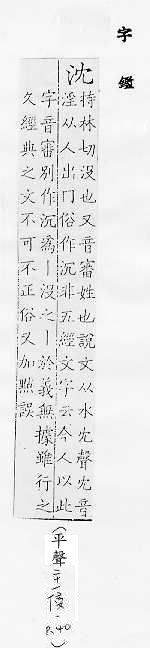 字鑑
沈
持林切沒也又音審姓也說文从水冘聲冘音
淫从人出冂俗作沉非五經文字云今人以此
字音審別作沉爲丨沒之丨於義無據雖行之
久經典之文不可不正俗又加㸃誤
(平聲
P.40)